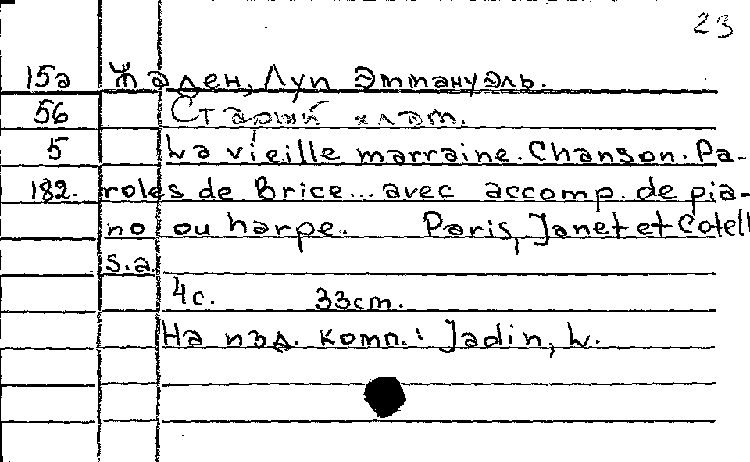 23
15а Жаден, Луи Эммануэль.
56 Старый
5 La vieille marraine. Chanson. Pa-
182. roles de Brice... avec accomp. de pia-
no ou harpe. Paris, Janet et Cotell
s.a.
4с. 33cm.
На изд. комп.: Jadin, L.